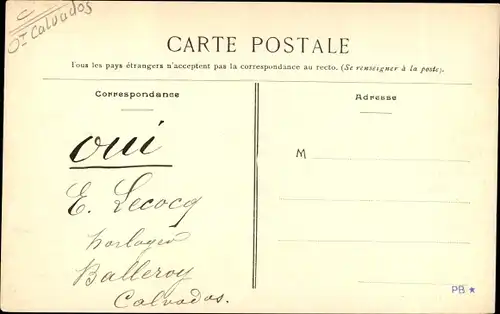 Dᵗ Calvados
CARTE POSTALE
Tous les pays étrangers n'acceptent pas la correspondance au recto. (Se renseigner à la poste).
Correspondance
oui
E. Lecocq
horloger
Balleroy
Calvados.
Adresse
M
PB ★